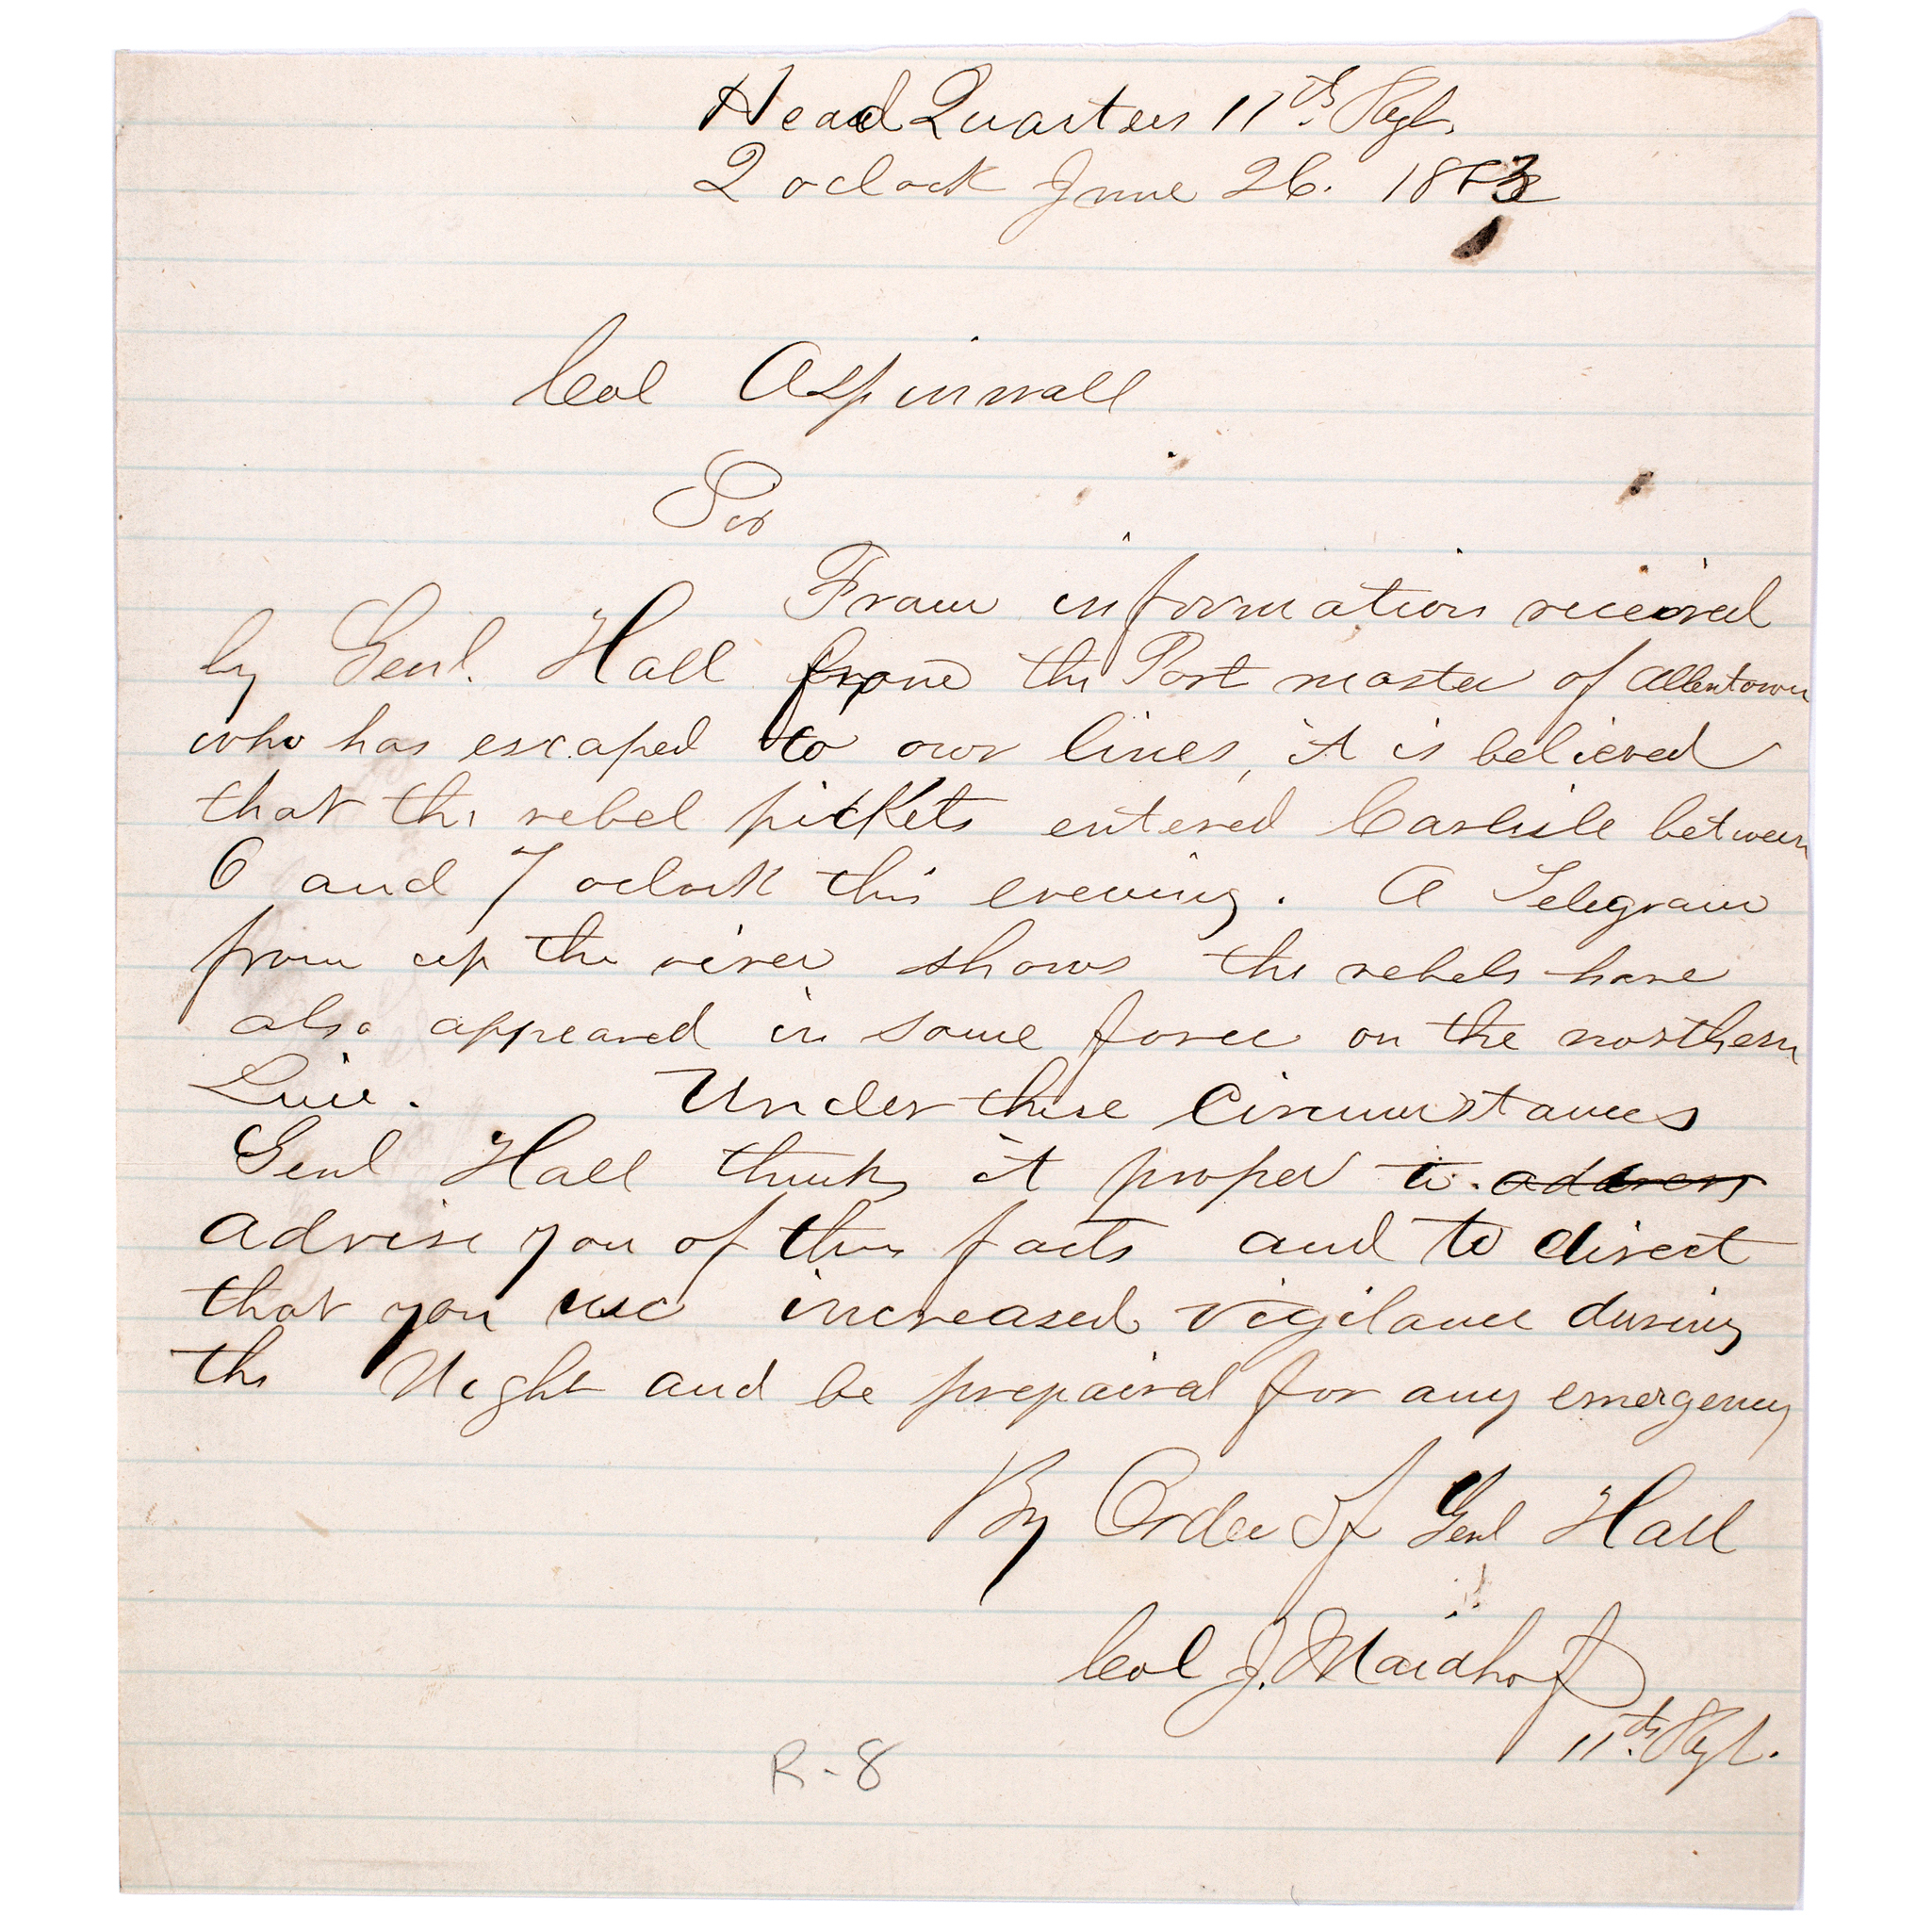 Head Quarters 11th. Regt.
2 oclock June 26. 1863
Col Aspinwall
Sir
From information received
by Genl. Hall from the Post master of Allentown
who has escaped to our lines, it is believed
that the rebel pickets entered Carlisle between
6 and 7 oclock this evening. A Telegram
from up the river shows the rebels have
also appeared in some force on the northern
Line. Under these Circumstances
Genl Hall thinks it proper to. address
advise you of this facts and to direct
that you use increased vigilance during
the Night and be prepaired for any emergency
By Order Of Genl Hall
Col J. Maidhof
11th. Regt.
R-8